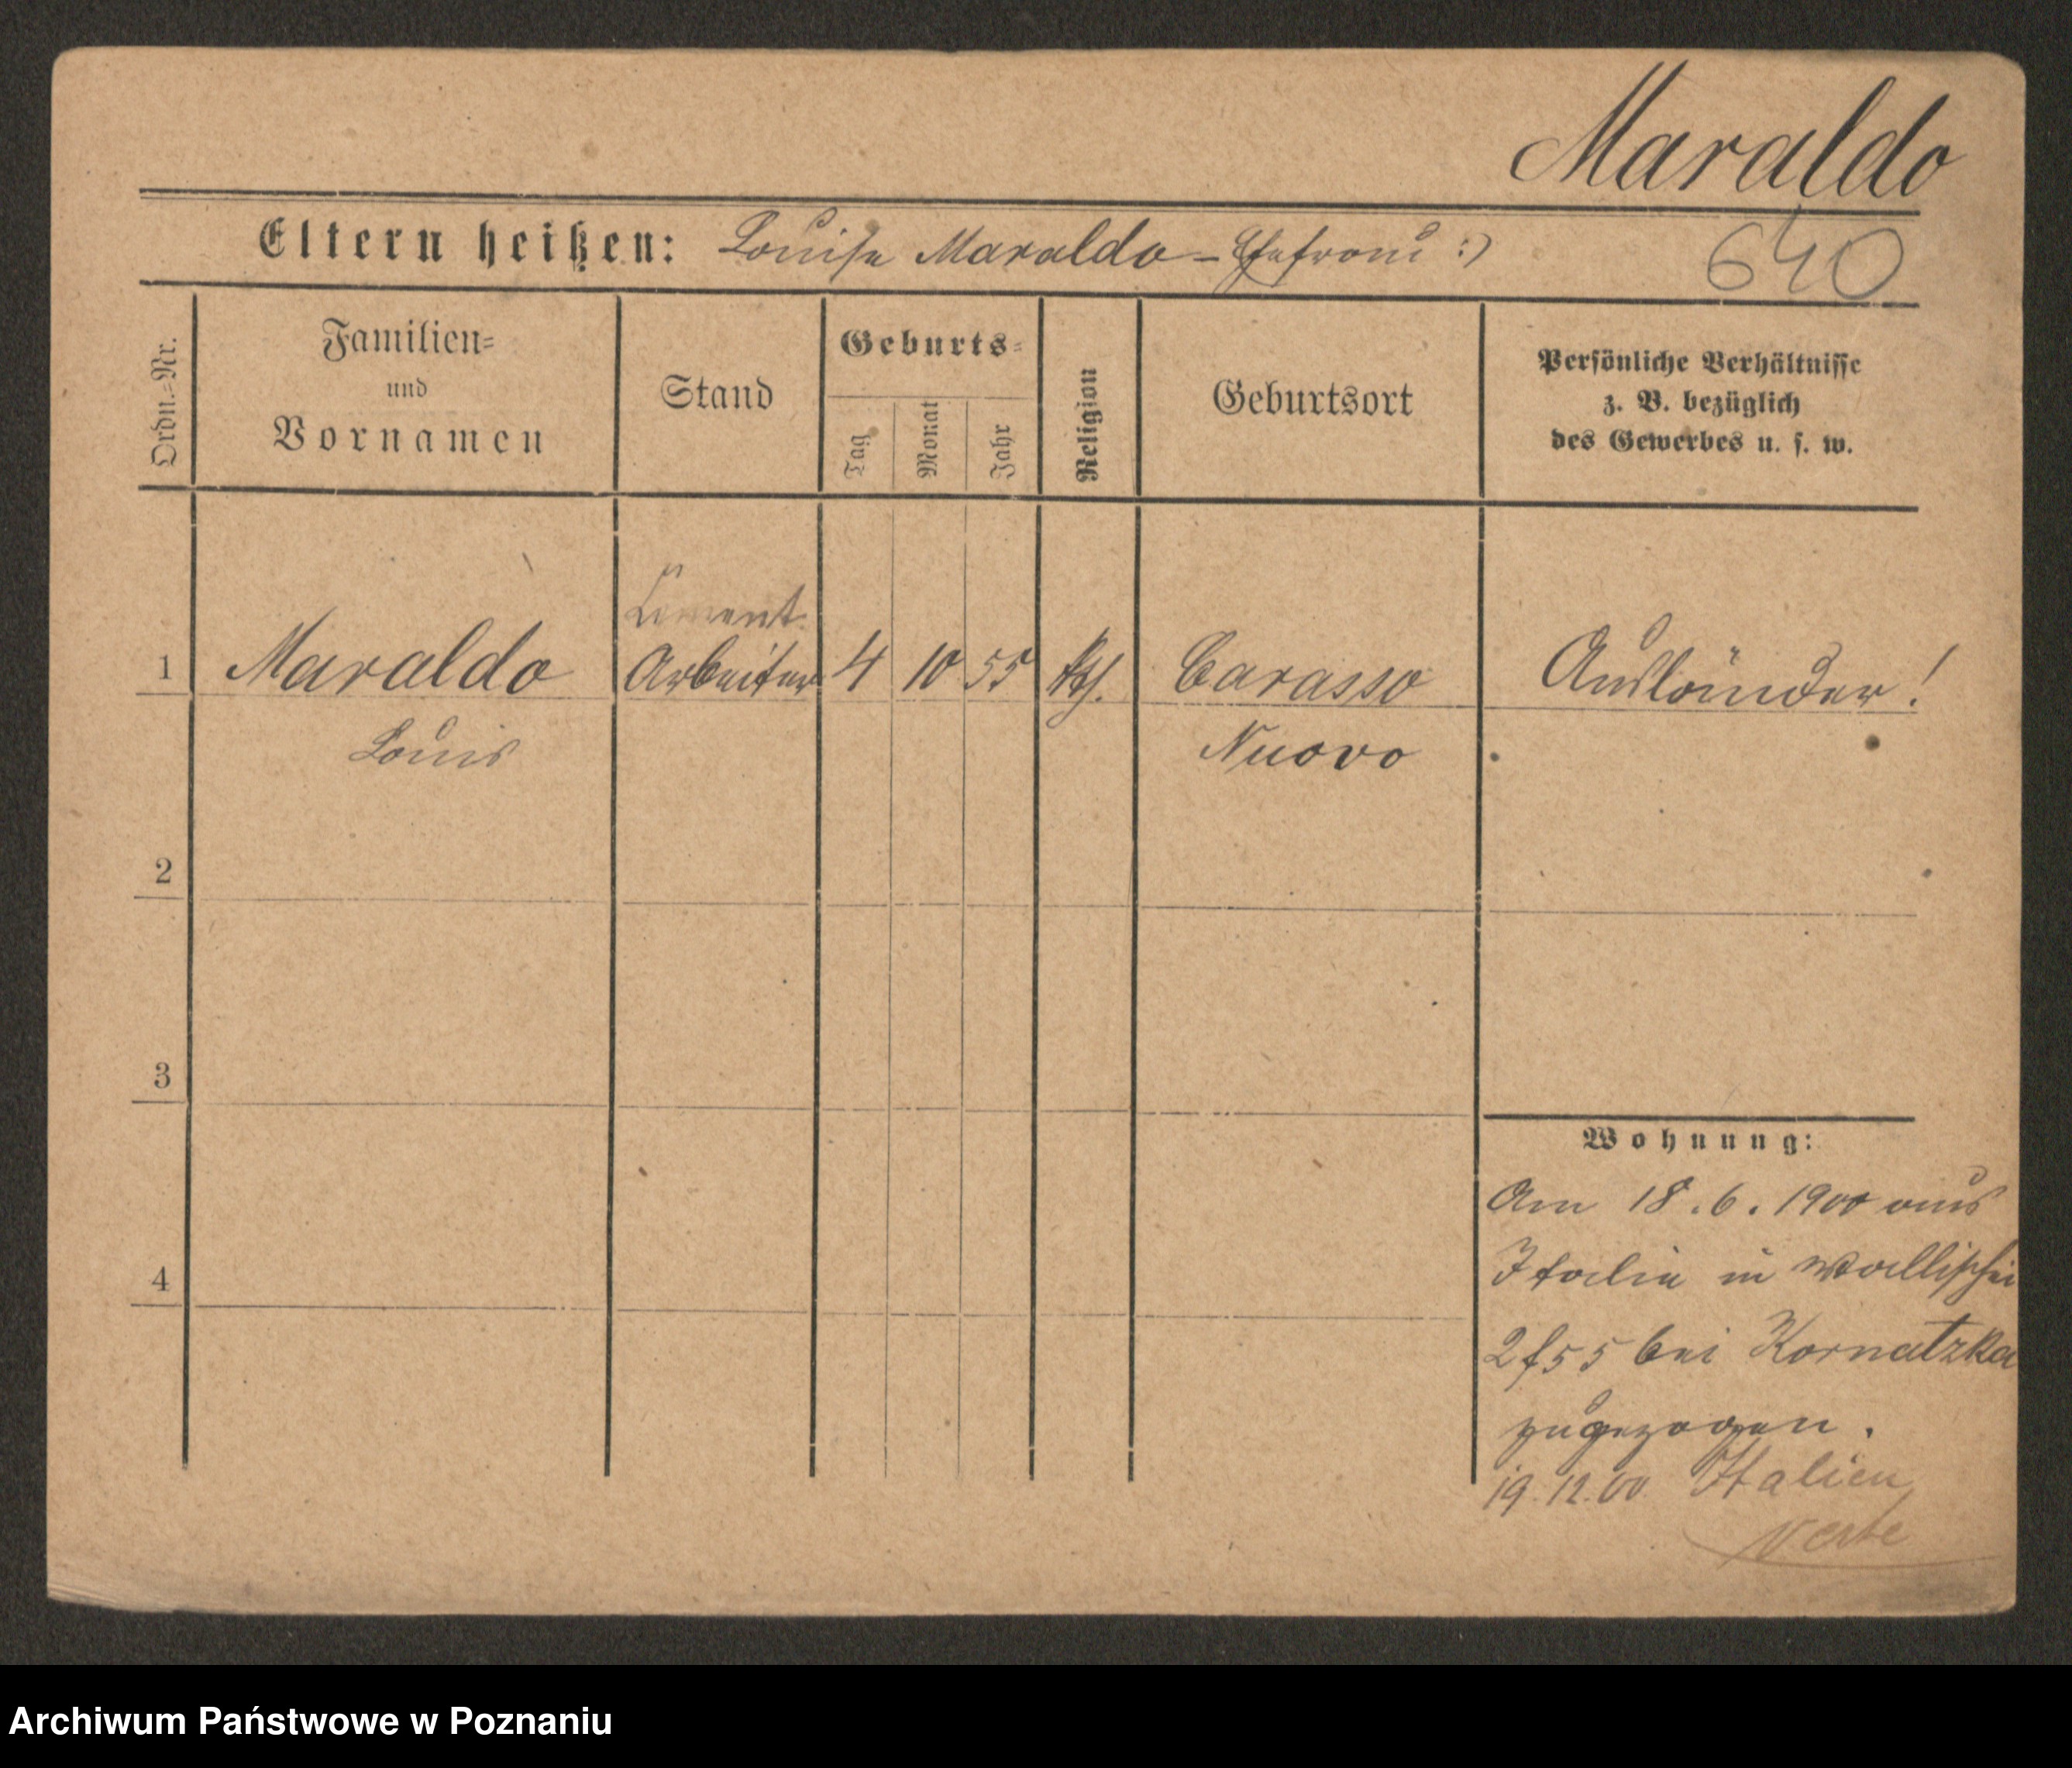 Maraldo
Eltern heißen: Louise Maraldo - Ehefrau :)
640
Ordn.-Nr.
Familien-
und
Vornamen
Stand
Geburts-
Tag
Monat
Jahr
Religion
Geburtsort
Persönliche Verhältnisse
z. B. bezüglich
des Gewerbes u. s. w.
Cement
1 Maraldo Arbeiter 4 10 55 kth. Carasso Ausländer!
Louis Nuovo
2
3
4
Wohnung:
Am 18.6.1900 aus
Italie in Wallischei
55 bei Kornatzka
zugezogen.
19.12.00 Italien
verte
Archiwum Państwowe w Poznaniu